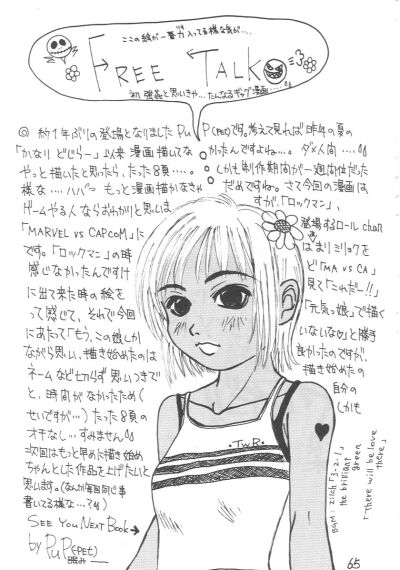 ここの絵が一番力入ってる様な気が....
FREE TALK
初 強姦と思いきや...たんなるギャグ漫画....
◎ 約1年ぶりの登場となりました PuP(PET)です。考えて見れば昨年の夏の
「かなり どじらー」以来 漫画描いてな かったんですよねー...。ダメ人間....
やっと描いたと思ったら、たった8頁....。 しかも制作期間が一週間位だった
様な.... ハハハ もっと漫画描かなきゃ だめですね。さて今回の漫画は
ゲームやる人ならおわかりと思いま すが、「ロックマン」、
「MARVEL VS CAPCOM」に 登場するロールchan
です。「ロックマン」の時 はまりミリックを
感じなかったんですけ ど「MA VS CA」
に出て来た時の絵を 見て「これだー!!」
って感じで、それで今回 「元気っ娘」で描く
にあたって「もう、この娘しか いないなぁ」と
ながら思い、描き始めたのは 良かったのですが、
ネームなど切らず 思いつきで 描き始めた
と、時間がなかったため( 自分の
せいですが...)たった8頁の しかも
オチなし... すみません
次回はもっと早めに描き始め
ちゃんとした作品を上げたいと
思います。(なんか毎回同じ事
書いてる様な...?)
SEE YOU NEXT BOOK→
by PuP(PET)
・TWR・
BGM: zilch「3・2・1」
the brilliant green
「There will be love there」
65